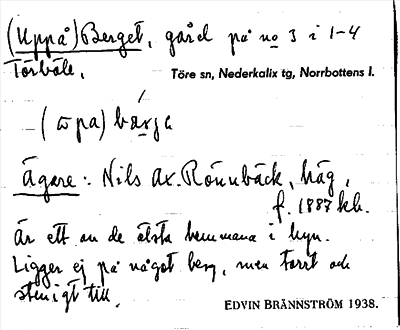 (Uppå) Berget, gård på no 3 i 1-4
Törböle.
Töre sn, Nederkalix tg, Norrbottens l.
(ɷpa) bærja
Ägare: Nils Ax. Rönnbäck, häg,
f. 1887 kb.
Är ett av de älsta hemmana i byn.
Ligger ej på något berg, men torrt och
stenigt till.
EDVIN BRÄNNSTRÖM 1938.